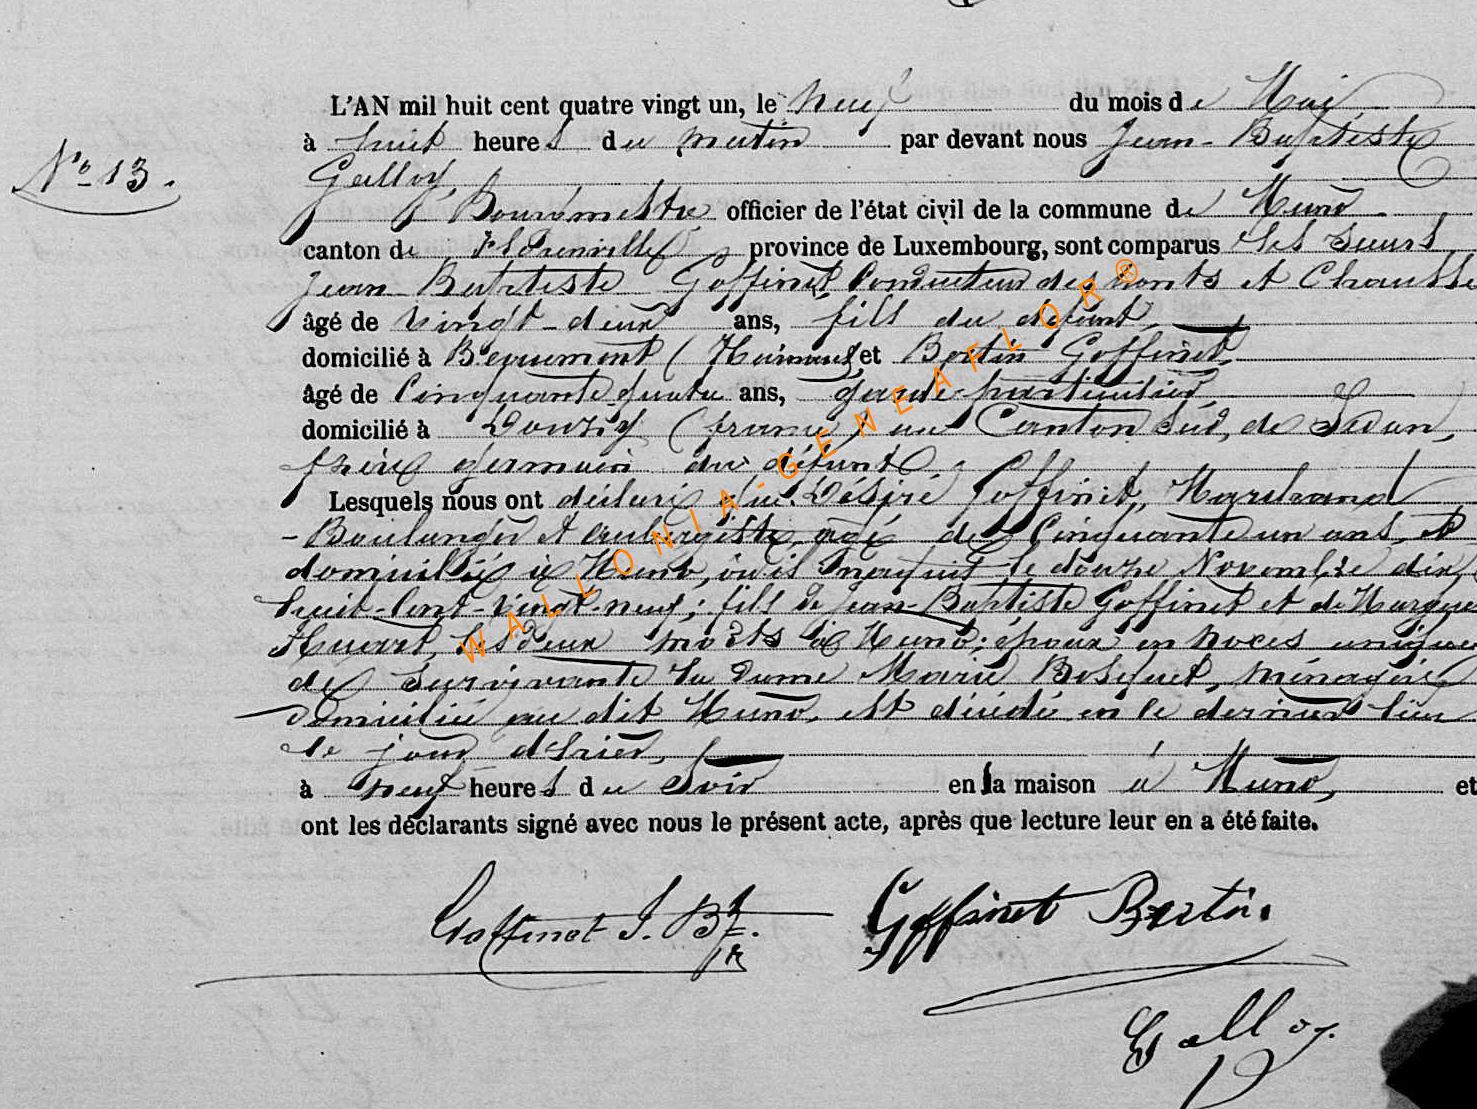 L'AN mil huit cent quatre vingt un, le neuf du mois de Mai
à huit heures du matin par devant nous Jean-Baptiste
No 13.
Galloy,
Bourgmestre officier de l'état civil de la commune de Muno
canton de Florenville, province de Luxembourg, sont comparus les sieurs
Jean-Baptiste Goffinet, Conducteur des ponts et Chaussé
âgé de vingt-deux ans, fils du défunt,
domicilié à Beaumont (Hainaut) et Bertin Goffinet,
âgé de Cinquante quatre ans, garde particulier,
domicilié à Douzy (france) au Canton Sud, de Sedan,
frère germain du défunt.
Lesquels nous ont déclaré que Désiré Goffinet, Marchand
-Boulanger et Aubergiste, agé de Cinquante un ans, et
domicilié à Muno, où il naquit le douze Novembre dix
huit-Cent-vingt-neuf; fils de Jean-Baptiste Goffinet et de Margue
Huart, les deux morts à Muno; époux en noces uniques
de survivante la dame Marie Bosquet, ménagère
domiciliée au dit Muno, est décédé en ce dernier lieu
le jour d'hier,
à neuf heures du Soir en la maison à Muno, et
ont les déclarants signé avec nous le présent acte, après que lecture leur en a été faite.
Goffinet J. Bte
Goffinet Bertin.
Galloy.
WALLONIA-GENEAFLOR®